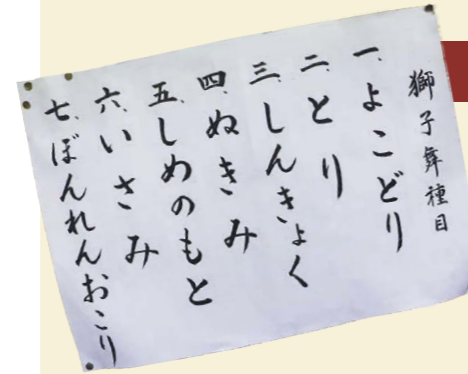 獅子舞種目
一、よこどり
二、とり
三、しんきょく
四、ぬきみ
五、しめのもと
六、いさみ
七、ぼんれんおこり